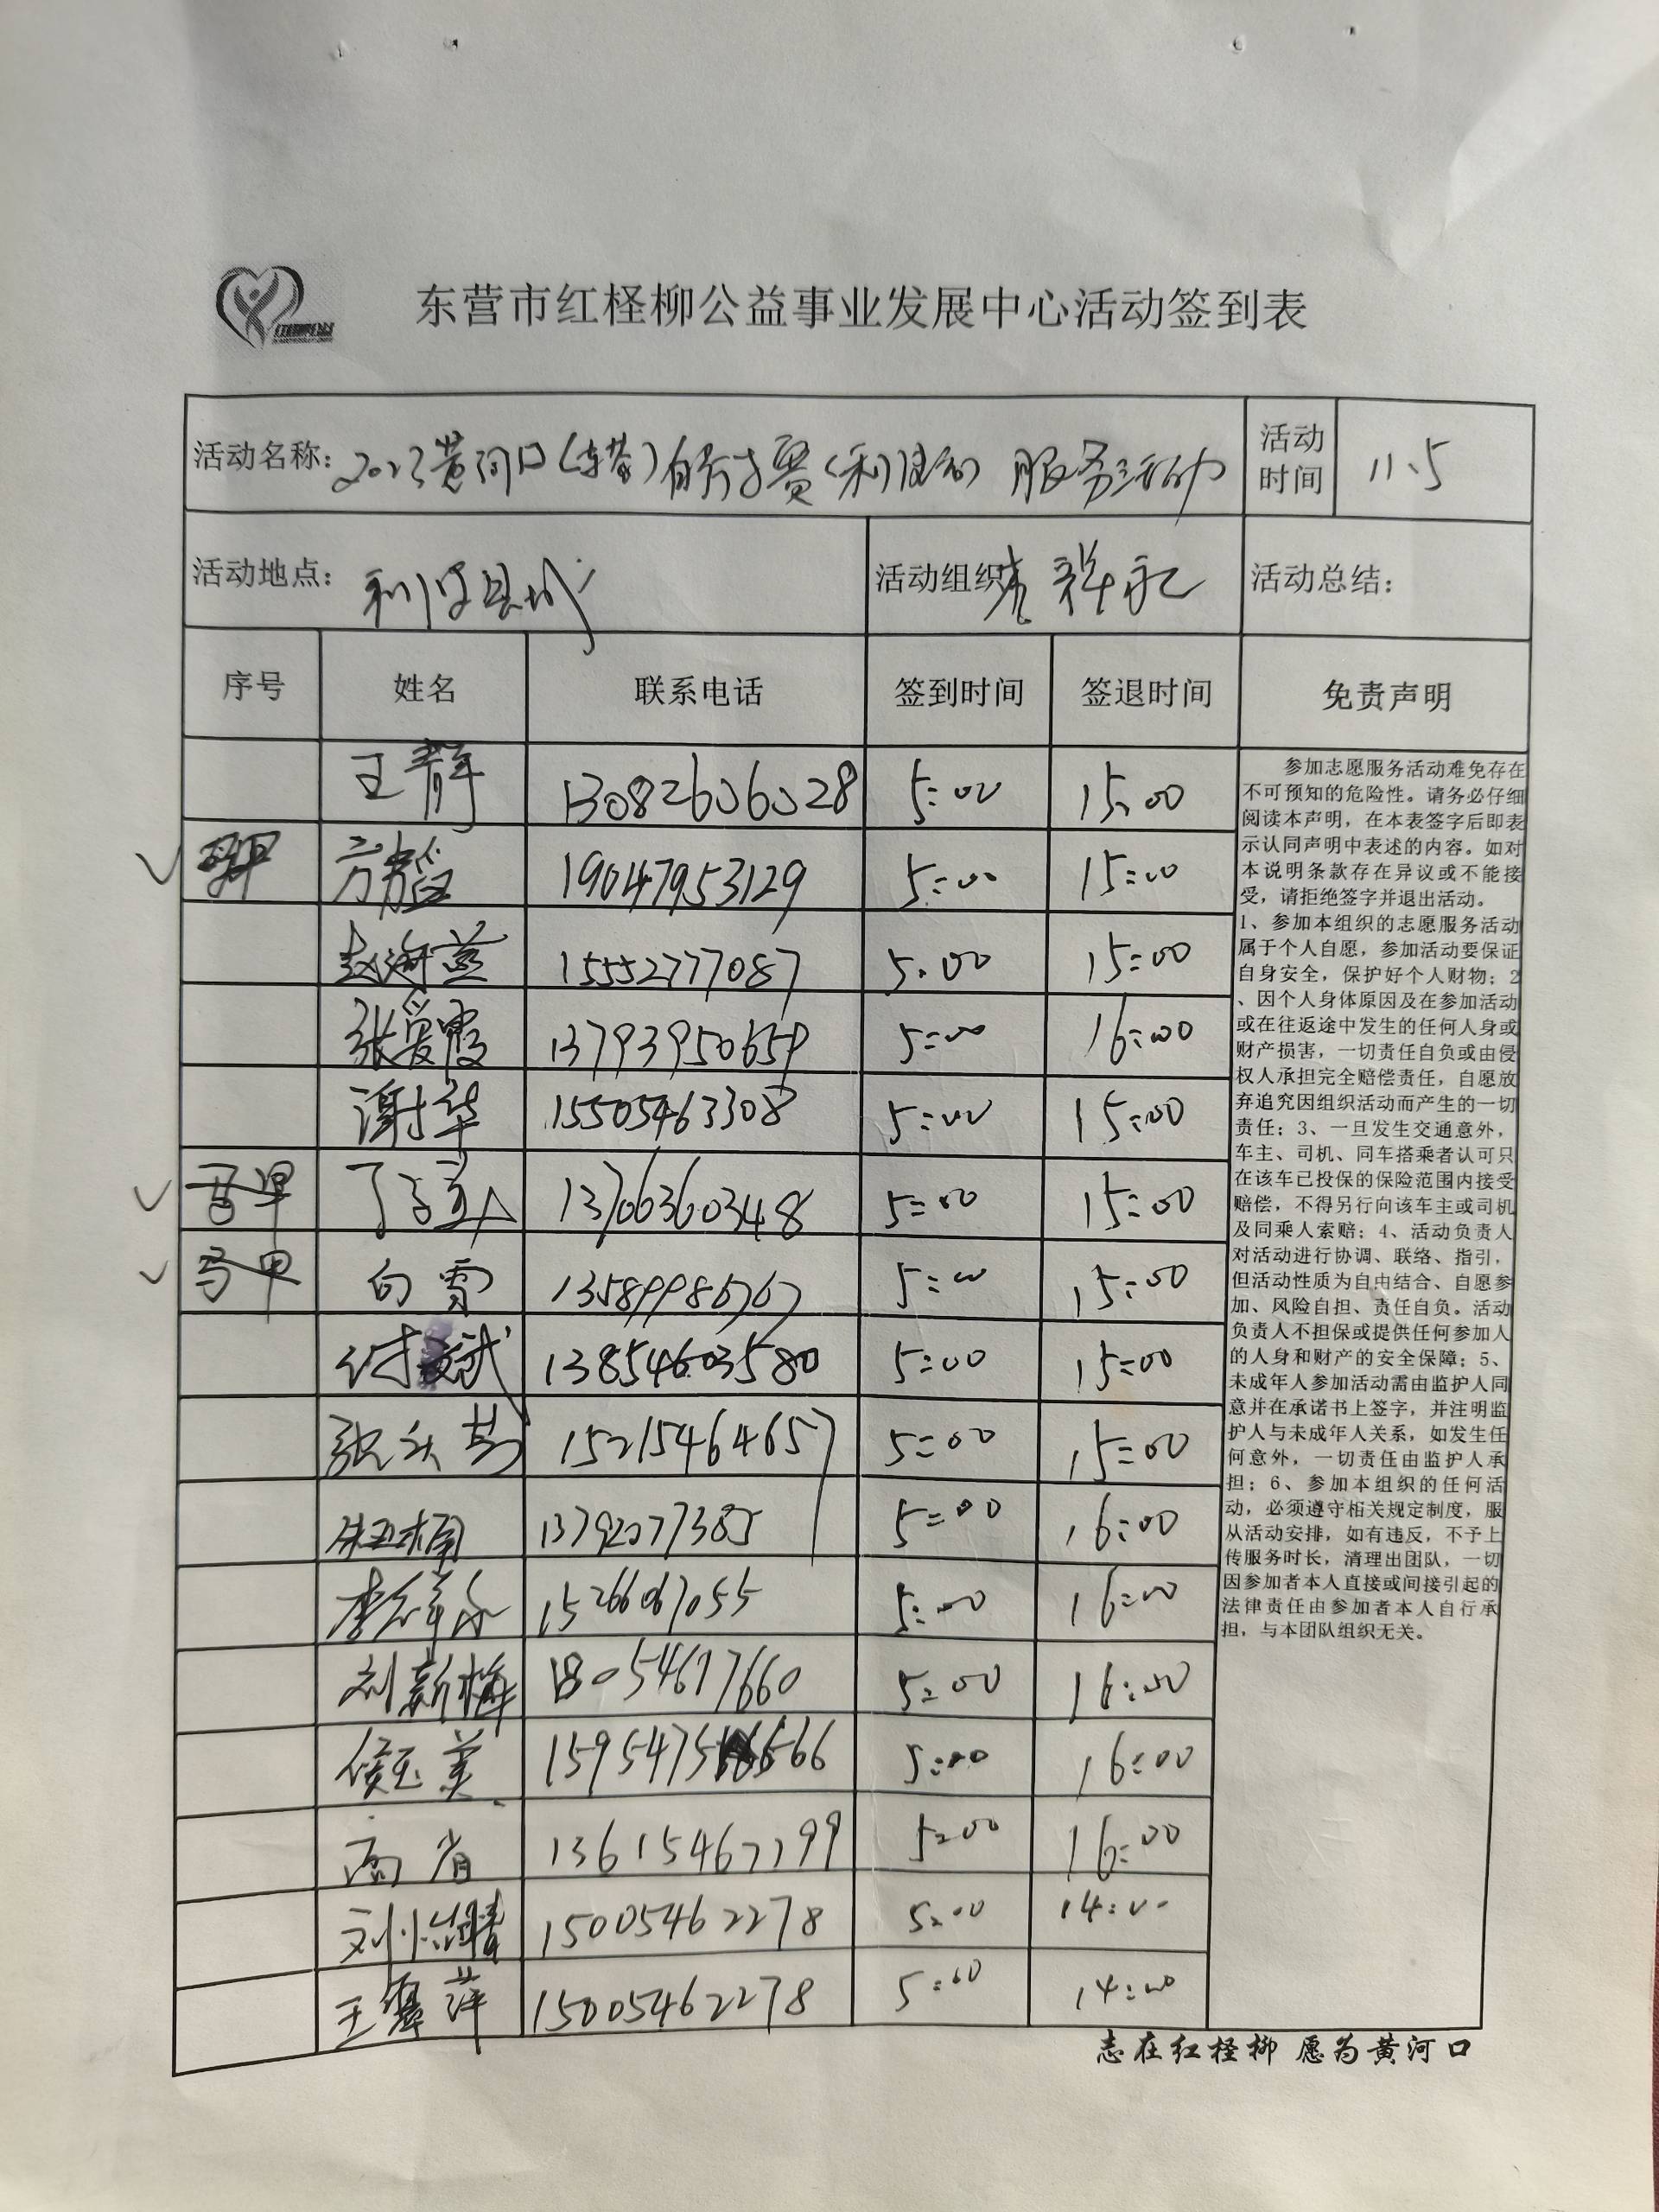 东营市红柽柳公益事业发展中心活动签到表
活动名称：2023黄河口(东营)自行车赛(利津站) 服务活动 活动时间 11.5
活动地点：利津县城 活动组织 祥永 活动总结：
序号 姓名 联系电话 签到时间 签退时间 免责声明
王静 13082606028 5:00 15:00
马甲 19047953129 5:00 15:00
赵海燕 15552777087 5:00 15:00
张爱霞 13793950659 5:00 16:00
谢华 15505463308 5:00 15:00
马甲 丁 13706360348 5:00 15:00
马甲 白雪 13589986767 5:00 15:00
付斌 13854603580 5:00 15:00
张 15215464657 5:00 15:00
13792077385 5:00 16:00
李 15266067055 5:00 16:00
刘新梅 18054677660 5:00 16:00
侯玉美 5:00 16:00
高省 13615467799 5:00 16:00
刘 15005462278 5:00 14:00
王 萍 15005462278 5:00 14:00
参加志愿服务活动难免存在
不可预知的危险性。请务必仔细
阅读本声明，在本表签字后即表
示认同声明中表述的内容。如对
本说明条款存在异议或不能接
受，请拒绝签字并退出活动。
1、参加本组织的志愿服务活动
属于个人自愿，参加活动要保证
自身安全，保护好个人财物；2
、因个人身体原因及在参加活动
或在往返途中发生的任何人身或
财产损害，一切责任自负或由侵
权人承担完全赔偿责任，自愿放
弃追究因组织活动而产生的一切
责任；3、一旦发生交通意外，
车主、司机、同车搭乘者认可只
在该车已投保的保险范围内接受
赔偿，不得另行向该车主或司机
及同乘人索赔；4、活动负责人
对活动进行协调、联络、指引，
但活动性质为自由结合、自愿参
加、风险自担、责任自负。活动
负责人不担保或提供任何参加人
的人身和财产的安全保障；5、
未成年人参加活动需由监护人同
意并在承诺书上签字，并注明监
护人与未成年人关系，如发生任
何意外，一切责任由监护人承
担；6、参加本组织的任何活
动，必须遵守相关规定制度，服
从活动安排，如有违反，不予上
传服务时长，清理出团队，一切
因参加者本人直接或间接引起的
法律责任由参加者本人自行承
担，与本团队组织无关。
志在红柽柳 愿为黄河口